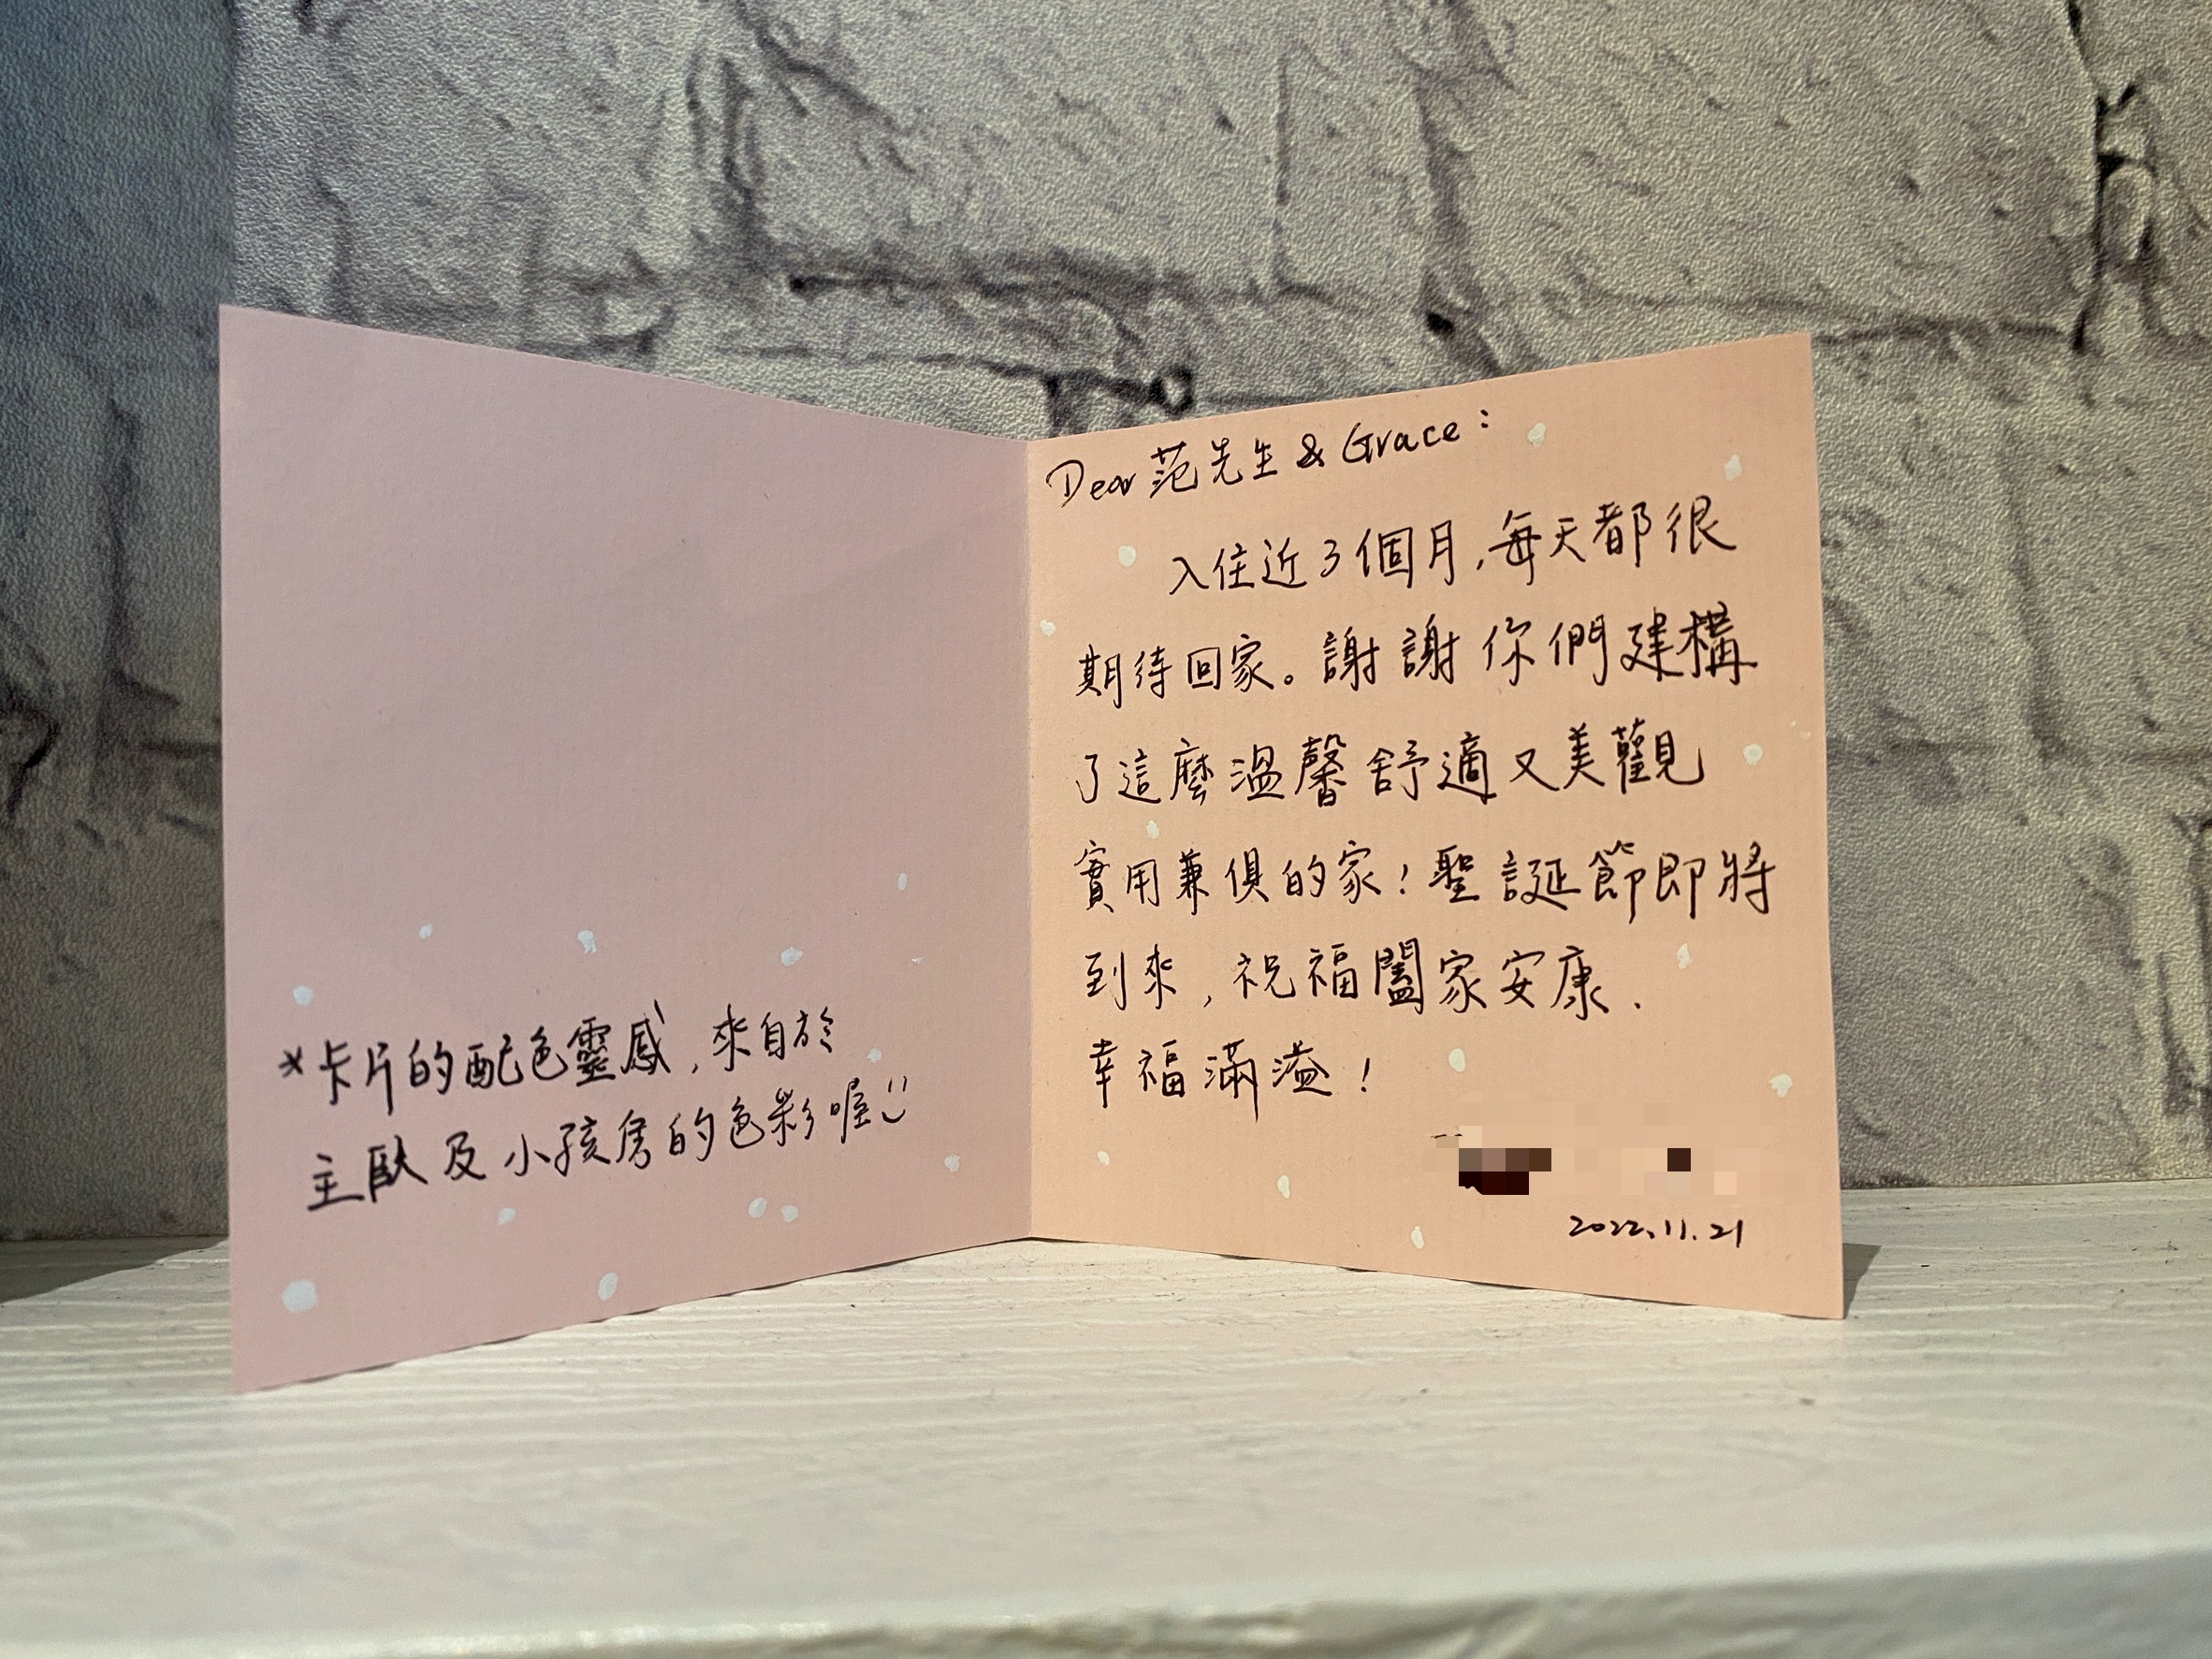 *卡片的配色靈感,來自於
主臥及小孩房的色彩喔
Dear 范先生 & Grace:
入住近3個月,每天都很
期待回家。謝謝你們建構
了這麼溫馨舒適又美觀
實用兼俱的家!聖誕節即將
到來,祝福闔家安康.
幸福滿溢!
2022.11.21